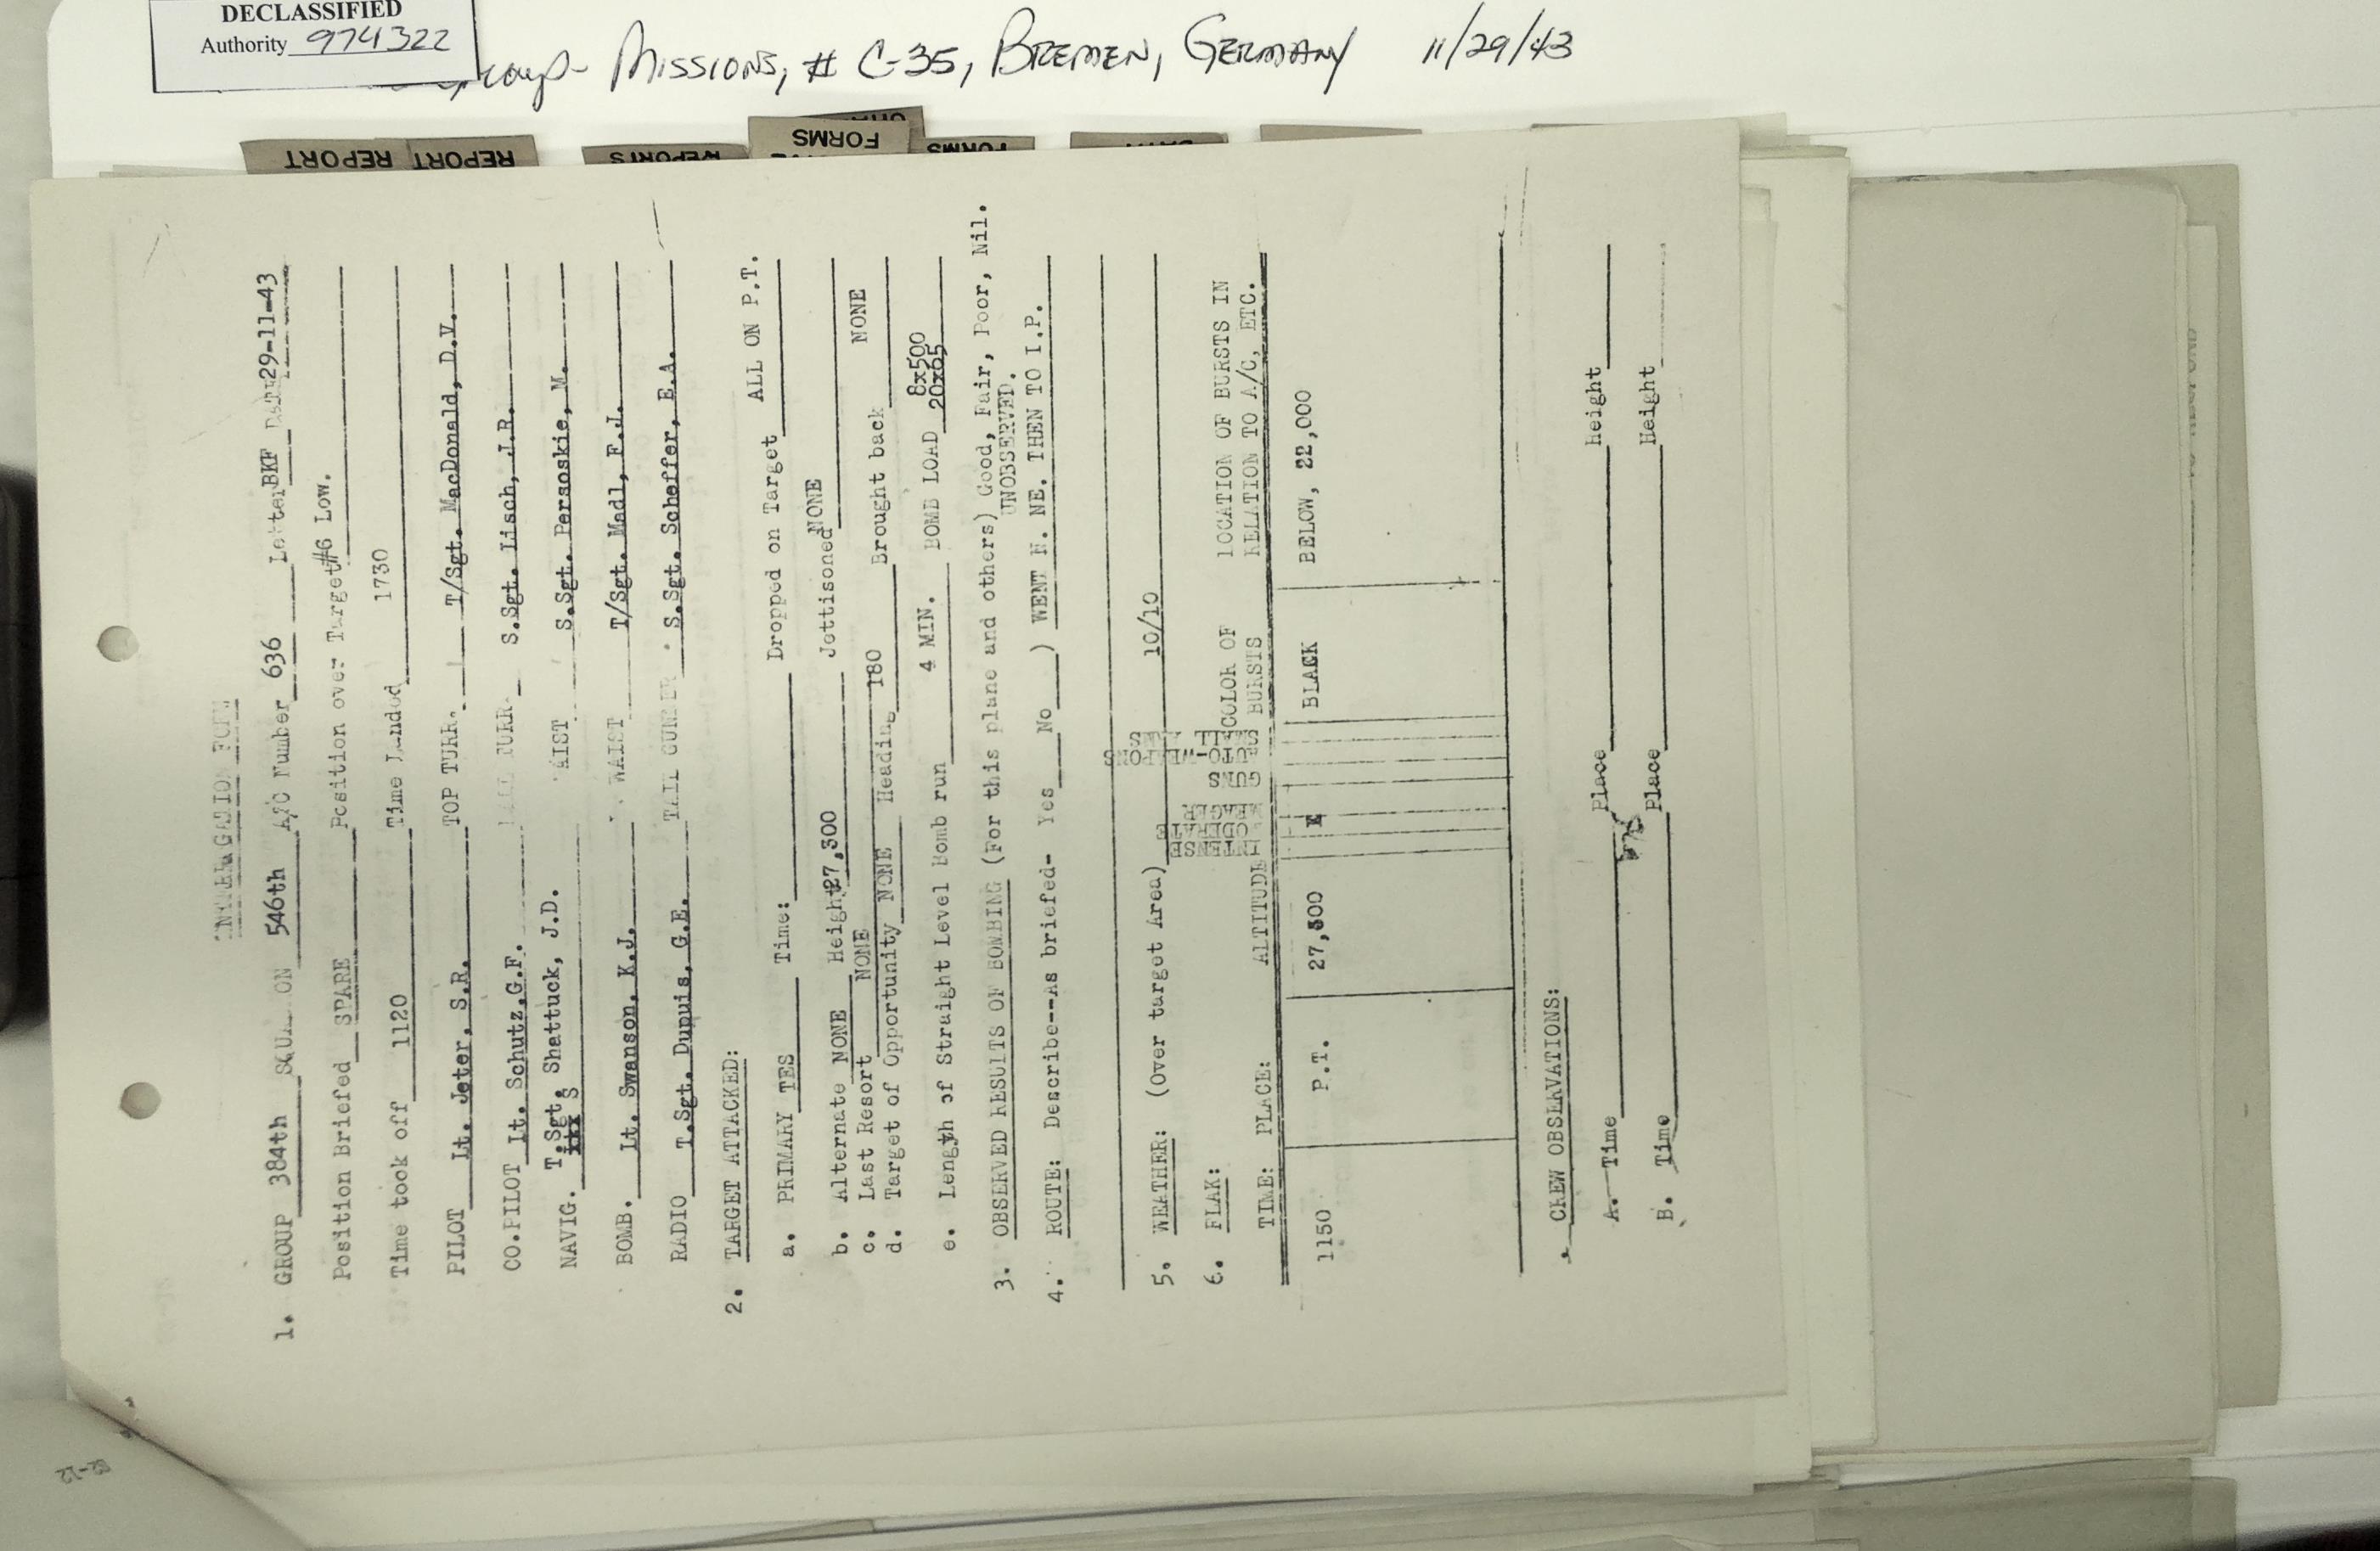 DECLASSIFIED
Authority 974322
Group- Missions, # C-35, Bremen, Germany 11/29/43
REPORT
REPORT
REPORTS
FORMS
FORMS
INTERROGATION FORM
1. GROUP 384th SQUADRON 546th A/C Number 636 Letter BKF Date 29-11-43
Position Briefed SPARE Position over Target #6 Low.
Time took off 1120 Time Landed 1730
PILOT Lt. Jeter, S.R. TOP TURR. T/Sgt. MacDonald, D.V.
CO.PILOT Lt. Schutz,G.F. BALL TURR. S.Sgt. Lisch, J.R.
NAVIG. T.Sgt. Shattuck, J.D. WAIST S.Sgt. Persoskie, M.
xxx S
BOMB. Lt. Swanson, K.J. WAIST T/Sgt. Madl, F.J.
RADIO T.Sgt. Dupuis, G.E. TAIL GUNNER S.Sgt. Scheffer, E.A.
2. TARGET ATTACKED:
a. PRIMARY YES Time: Dropped on Target ALL ON P.T.
b. Alternate NONE Height 27,300 Jettisoned NONE
c. Last Resort NONE
d. Target of Opportunity NONE Heading 180 Brought back NONE
e. Length of Straight Level Bomb run 4 MIN. BOMB LOAD 8x500
20x65
3. OBSERVED RESULTS OF BOMBING (For this plane and others) Good, Fair, Poor, Nil.
UNOBSERVED.
4. ROUTE: Describe--As briefed- Yes No ) WENT N. NE. THEN TO I.P.
5. WEATHER: (Over target Area) 10/10
6. FLAK:
TIME: PLACE: ALTITUDE INTENSE MODERATE MEAGER GUNS AUTO-WEAPONS SMALL ARMS COLOR OF BURSTS LOCATION OF BURSTS IN RELATION TO A/C, ETC.
1150 P.T. 27,300 BLACK BELOW, 22,000
CREW OBSERVATIONS:
A. Time Place height
B. Time Place Height